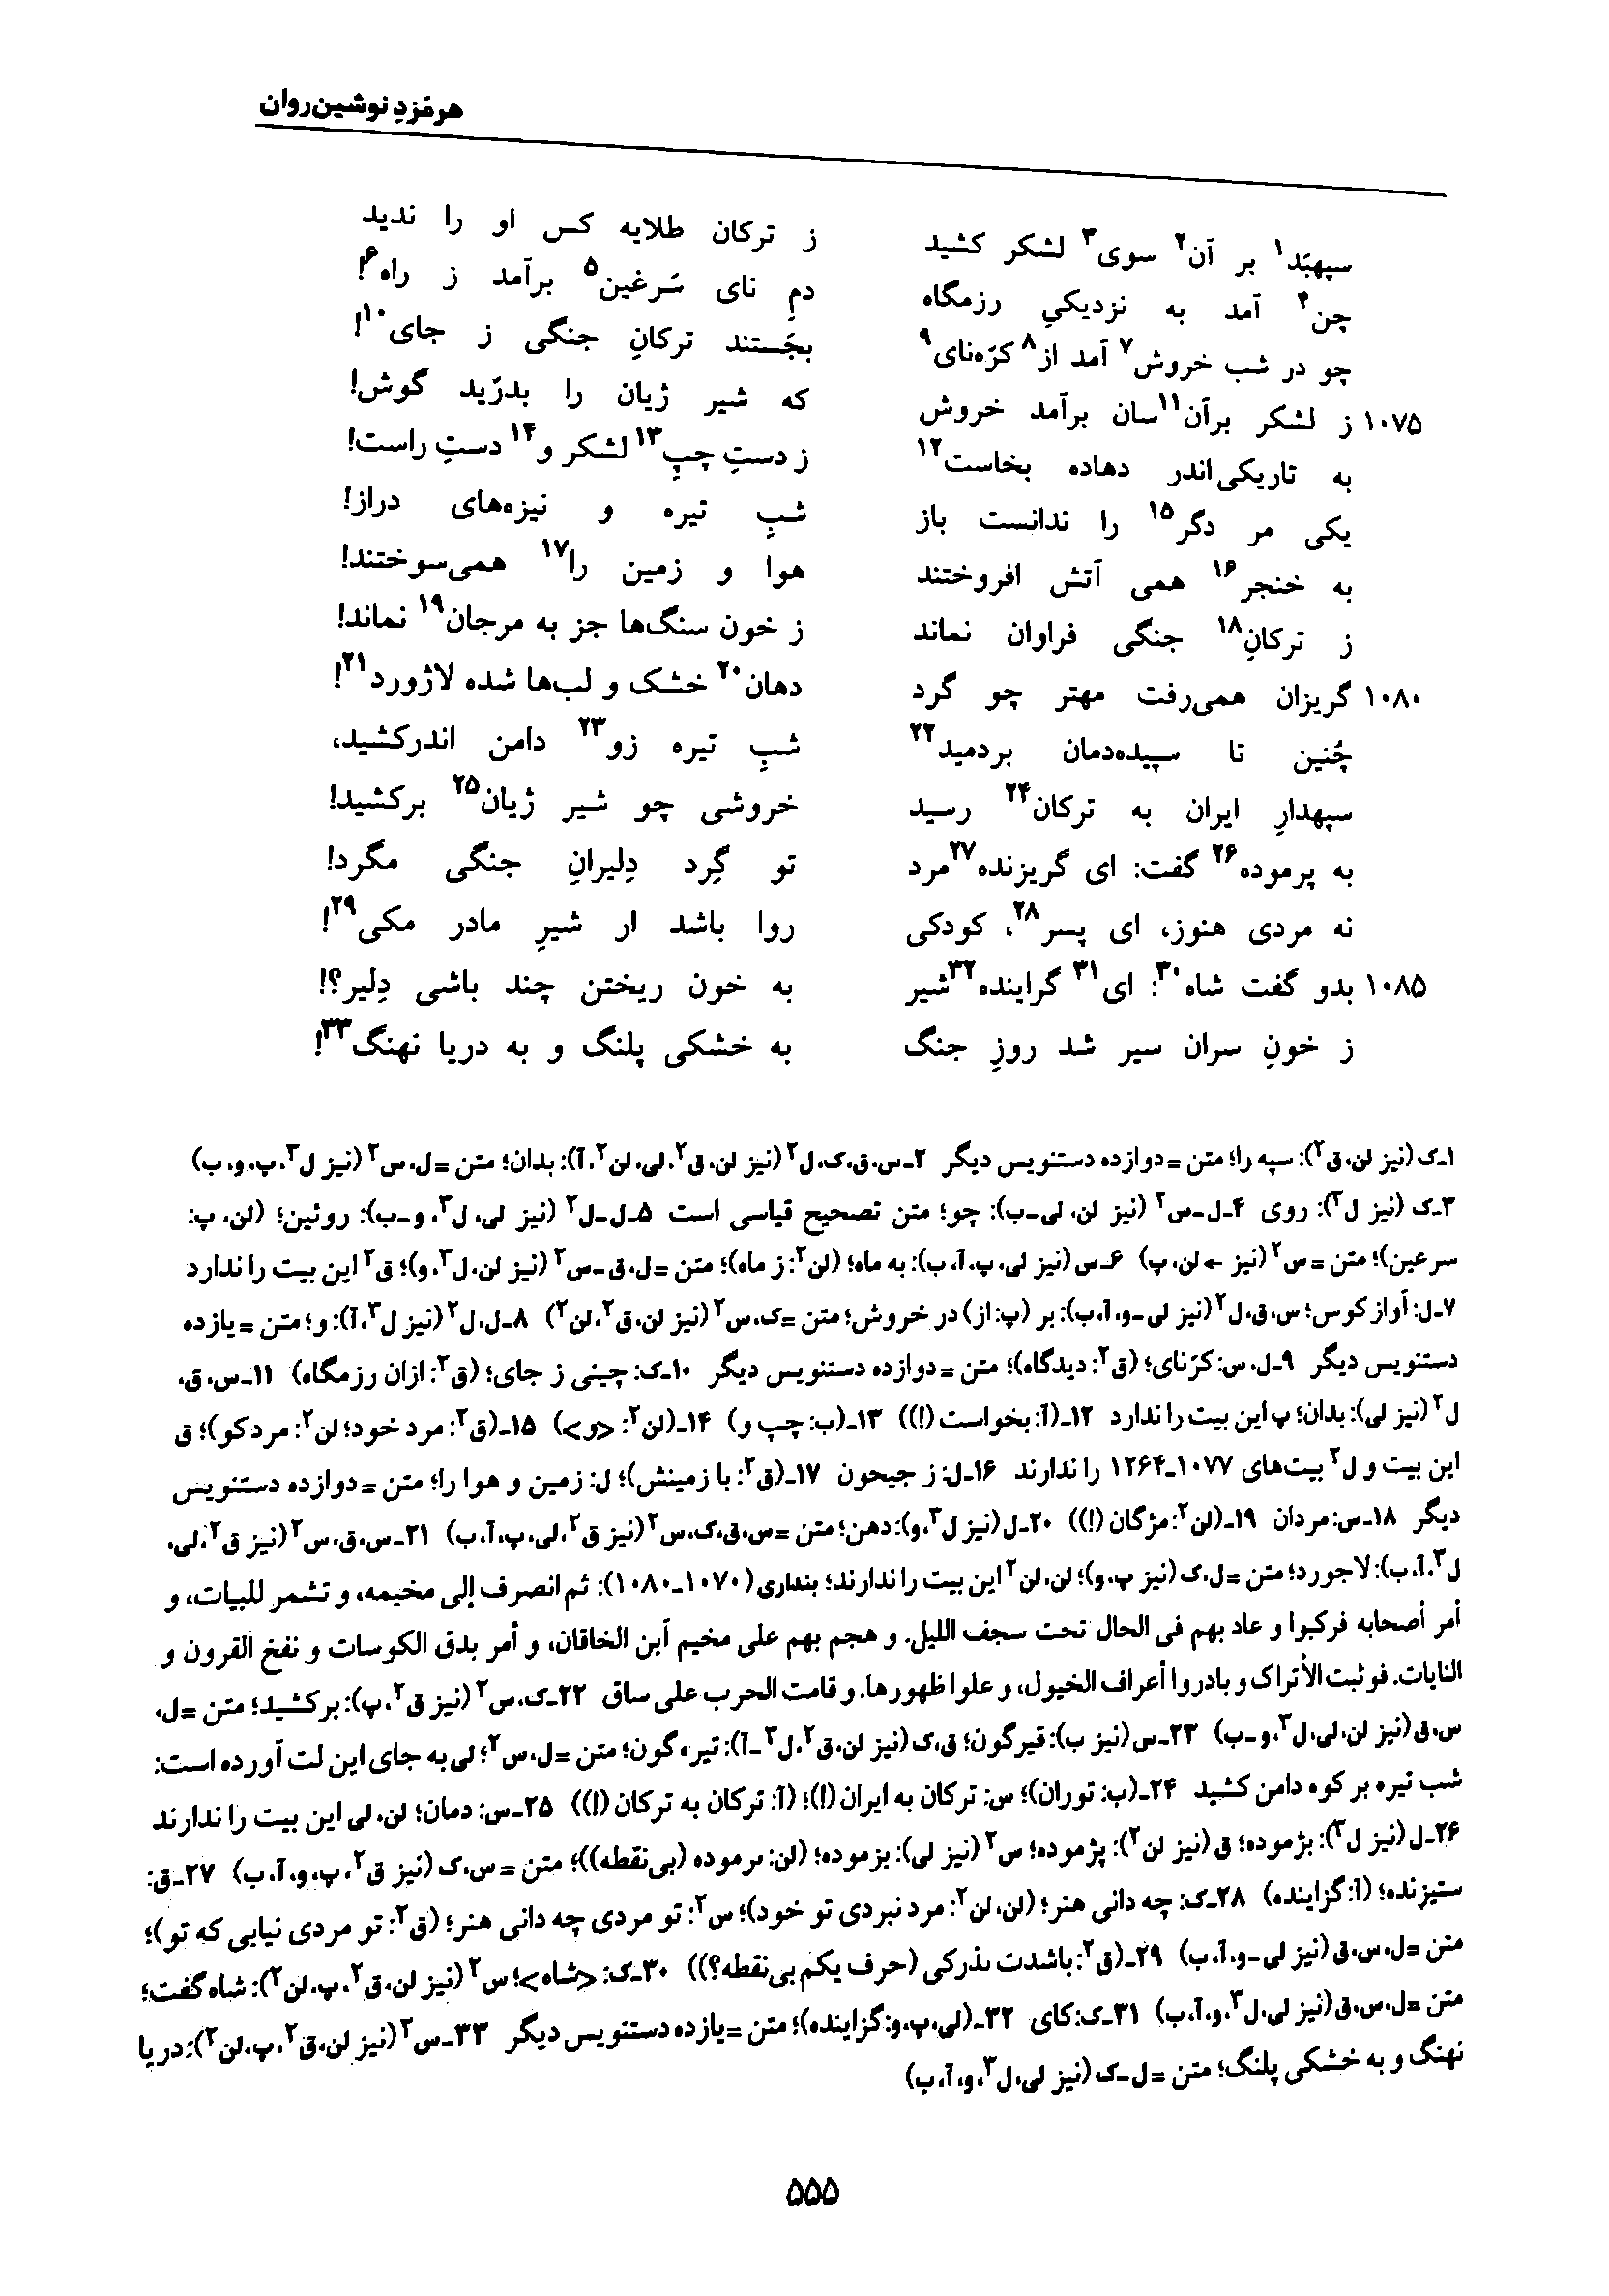 هرمَزدِ نوشین‌روان
سپهبَد۱ بر آن۲ سوی۳ لشکر کشید ز ترکان طلایه کس او را ندید
چن۴ آمد به نزدیکیِ رزمگاه دمِ نای سَرغین۵ برآمد ز راه۶!
چو در شب خروش۷ آمد از۸ کرّه‌نای۹ بجَستند ترکانِ جنگی ز جای۱۰!
۱۰۷۵ ز لشکر برآن۱۱سان برآمد خروش که شیر ژیان را بدرّید گوش!
به تاریکی‌اندر دهاده بخاست۱۲ ز دستِ چپِ۱۳ لشکر و۱۴ دستِ راست!
یکی مر دگر۱۵ را ندانست باز شبِ تیره و نیزه‌های دراز!
به خنجر۱۶ همی آتش افروختند هوا و زمین را۱۷ همی‌سوختند!
ز ترکانِ۱۸ جنگی فراوان نماند ز خون سنگ‌ها جز به مرجان۱۹ نماند!
۱۰۸۰ گریزان همی‌رفت مهتر چو گرد دهان۲۰ خشک و لب‌ها شده لاژورد۲۱!
چُنین تا سپیده‌دمان بردمید۲۲ شبِ تیره زو۲۳ دامن اندرکشید،
سپهدارِ ایران به ترکان۲۴ رسید خروشی چو شیر ژیان۲۵ برکشید!
به پرموده۲۶ گفت: ای گریزنده۲۷مرد تو گِرد دِلیرانِ جنگی مگرد!
نه مردی هنوز، ای پسر۲۸، کودکی روا باشد ار شیرِ مادر مکی۲۹!
۱۰۸۵ بدو گفت شاه۳۰: ای۳۱ گراینده۳۲شیر به خون ریختن چند باشی دِلیر؟!
ز خونِ سران سیر شد روزِ جنگ به خشکی پلنگ و به دریا نهنگ۳۳!
۱ـ‌ک (نیز لن، ق۲): سپه را؛ متن = دوازده دستنویس دیگر ۲ـ‌س، ق، ک، ل۲ (نیز لن، ق۲، لی، لن۲، آ): بدان؛ متن = ل، س۲ (نیز ل۳، پ، و، ب)
۳ـ‌ک (نیز ل۳): روی ۴ـ‌ل‌ـ‌س۲ (نیز لن، لی‌ـ‌ب): چو؛ متن تصحیح قیاسی است ۵ـ‌ل‌ـ‌ل۲ (نیز لی، ل۳، و‌ـ‌ب): روئین؛ (لن، پ:
سرعین)؛ متن = س۲ (نیز ← لن، پ) ۶ـ‌س (نیز لی، پ، آ، ب): به ماه؛ (لن۲: ز ماه)؛ متن = ل، ق‌ـ‌س۲ (نیز لن، ل۳، و)؛ ق۲ این بیت را ندارد
۷ـ‌ل: آواز کوس؛ س، ق، ل۲ (نیز لی‌ـ‌و، آ، ب): بر (پ: از) در خروش؛ متن = ک، س۲ (نیز لن، ق۲، لن۲) ۸ـ‌ل، ل۲ (نیز ل۳، آ): و؛ متن = یازده
دستنویس دیگر ۹ـ‌ل، س: کرّنای؛ (ق۲: دیدگاه)؛ متن = دوازده دستنویس دیگر ۱۰ـ‌ک: چینی ز جای؛ (ق۲: ازان رزمگاه) ۱۱ـ‌س، ق،
ل۲ (نیز لی): بدان؛ پ این بیت را ندارد ۱۲ـ(آ: بخواست (!)) ۱۳ـ(ب: چپ و) ۱۴ـ(لن۲: <و>) ۱۵ـ(ق۲: مرد خود؛ لن۲: مرد کو)؛ ق
این بیت و ل۲ بیت‌های ۱۰۷۷ـ۱۲۶۴ را ندارند ۱۶ـ‌ل: ز جیحون ۱۷ـ(ق۲: با زمینش)؛ ل: زمین و هوا را؛ متن = دوازده دستنویس
دیگر ۱۸ـ‌س: مردان ۱۹ـ(لن۲: مژگان (!)) ۲۰ـ‌ل (نیز ل۳، و): دهن؛ متن = س، ق، ک، س۲ (نیز ق۲، لی، پ، آ، ب) ۲۱ـ‌س، ق، س۲ (نیز ق۲، لی،
ل۳، آ، ب): لاجورد؛ متن = ل، ک (نیز پ، و)؛ لن، لن۲ این بیت را ندارند؛ بنداری (۱۰۷۰ـ۱۰۸۰): ثم انصرف إلی مخیمه، و تشمر للبیات، و
أمر أصحابه فرکبوا و عاد بهم فی الحال تحت سجف اللیل. و هجم بهم علی مخیم أبن الخاقان، و أمر بدق الکوسات و نفخ القرون و
النایات. فوثبت الأتراک و بادروا أعراف الخیول، و علوا ظهورها. و قامت الحرب علی ساق ۲۲ـ‌ک، س۲ (نیز ق۲، پ): برکشید؛ متن = ل،
س، ق (نیز لن، لی، ل۳، و‌ـ‌ب) ۲۳ـ‌س (نیز ب): قیرگون؛ ق، ک (نیز لن، ق۲، ل۳‌ـ‌آ): تیره گون؛ متن = ل، س۲؛ لی به جای این لت آورده است:
شب تیره بر کوه دامن کشید ۲۴ـ(ب: توران)؛ س: ترکان به ایران (!)؛ (آ: ترکان به ترکان (!)) ۲۵ـ‌س: دمان؛ لن، لی این بیت را ندارند
۲۶ـ‌ل (نیز ل۳): بژموده؛ ق (نیز لن۲): پژموده؛ س۲ (نیز لی): بزموده؛ (لن: ٮرموده (بی‌نقطه))؛ متن = س، ک (نیز ق۲، پ، و، آ، ب) ۲۷ـ‌ق:
ستیزنده؛ (آ: گزاینده) ۲۸ـ‌ک: چه دانی هنر؛ (لن، لن۲: مرد نبردی تو خود)؛ س۲: تو مردی چه دانی هنر؛ (ق۲: تو مردی نیابی که تو)؛
متن = ل، س، ق (نیز لی‌ـ‌و، آ، ب) ۲۹ـ(ق۲: باشدت ٮدرکی (حرف یکم بی‌نقطه؟)) ۳۰ـ‌ک: <شاه>؛ س۲ (نیز لن، ق۲، پ، لن۲): شاه گفت؛
متن = ل، س، ق (نیز لی، ل۳، و، آ، ب) ۳۱ـ‌ک: کای ۳۲ـ(لی، پ، و: گزاینده)؛ متن = یازده دستنویس دیگر ۳۳ـ‌س۲ (نیز لن، ق۲، پ، لن۲): دریا
نهنگ و به خشکی پلنگ؛ متن = ل‌ـ‌ک (نیز لی، ل۳، و، آ، ب)
۵۵۵